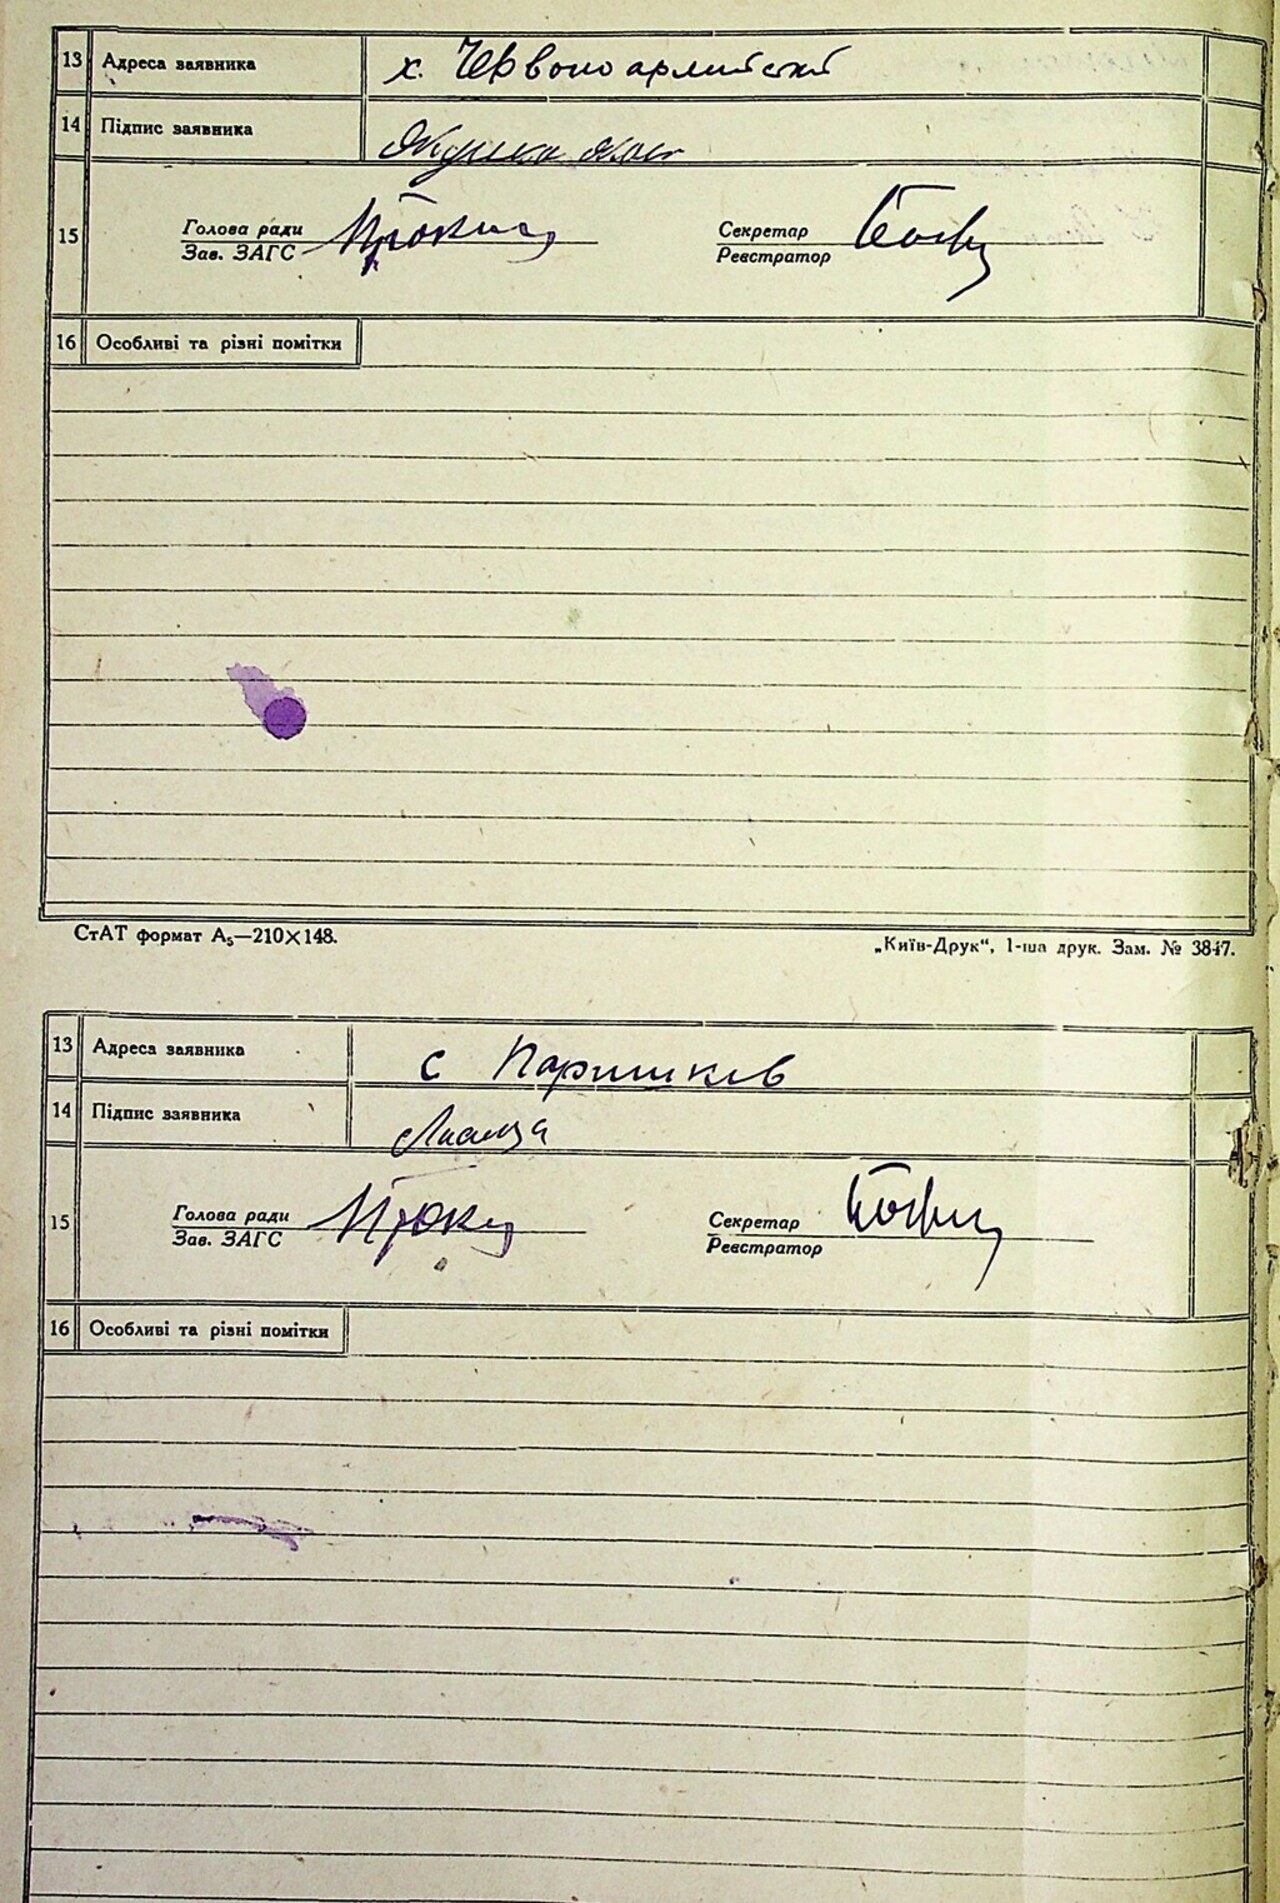 13 Адреса заявника х. Червоноармійський
14 Підпис заявника
15 Голова ради Секретар
Зав. ЗАГС Реєстратор
16 Особливі та різні помітки
СтАТ формат А₅—210×148. „Київ-Друк“, 1-ша друк. Зам. № 3847.
13 Адреса заявника с Паришків
14 Підпис заявника
15 Голова ради Секретар
Зав. ЗАГС Реєстратор
16 Особливі та різні помітки